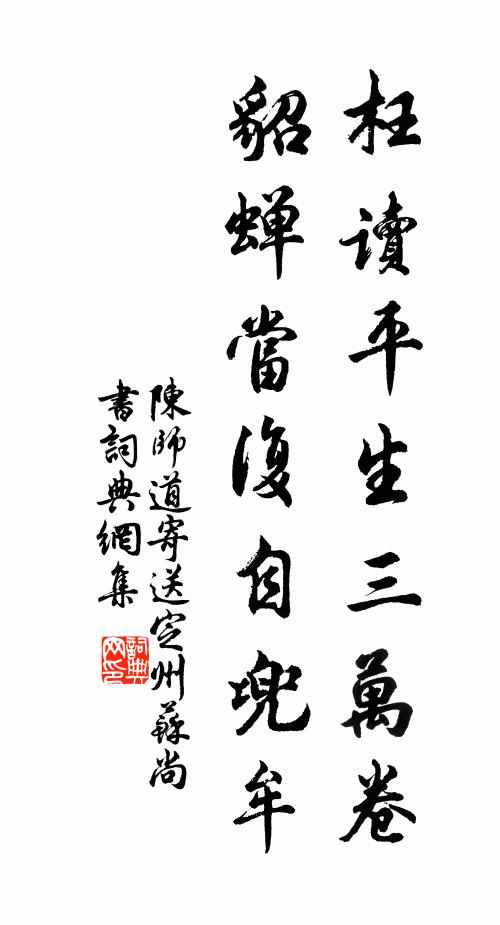 枉讀平生三萬卷
貂蟬當復自兜牟
陳師道寄送定州蘇尚
書詞典網集
詞典
网印